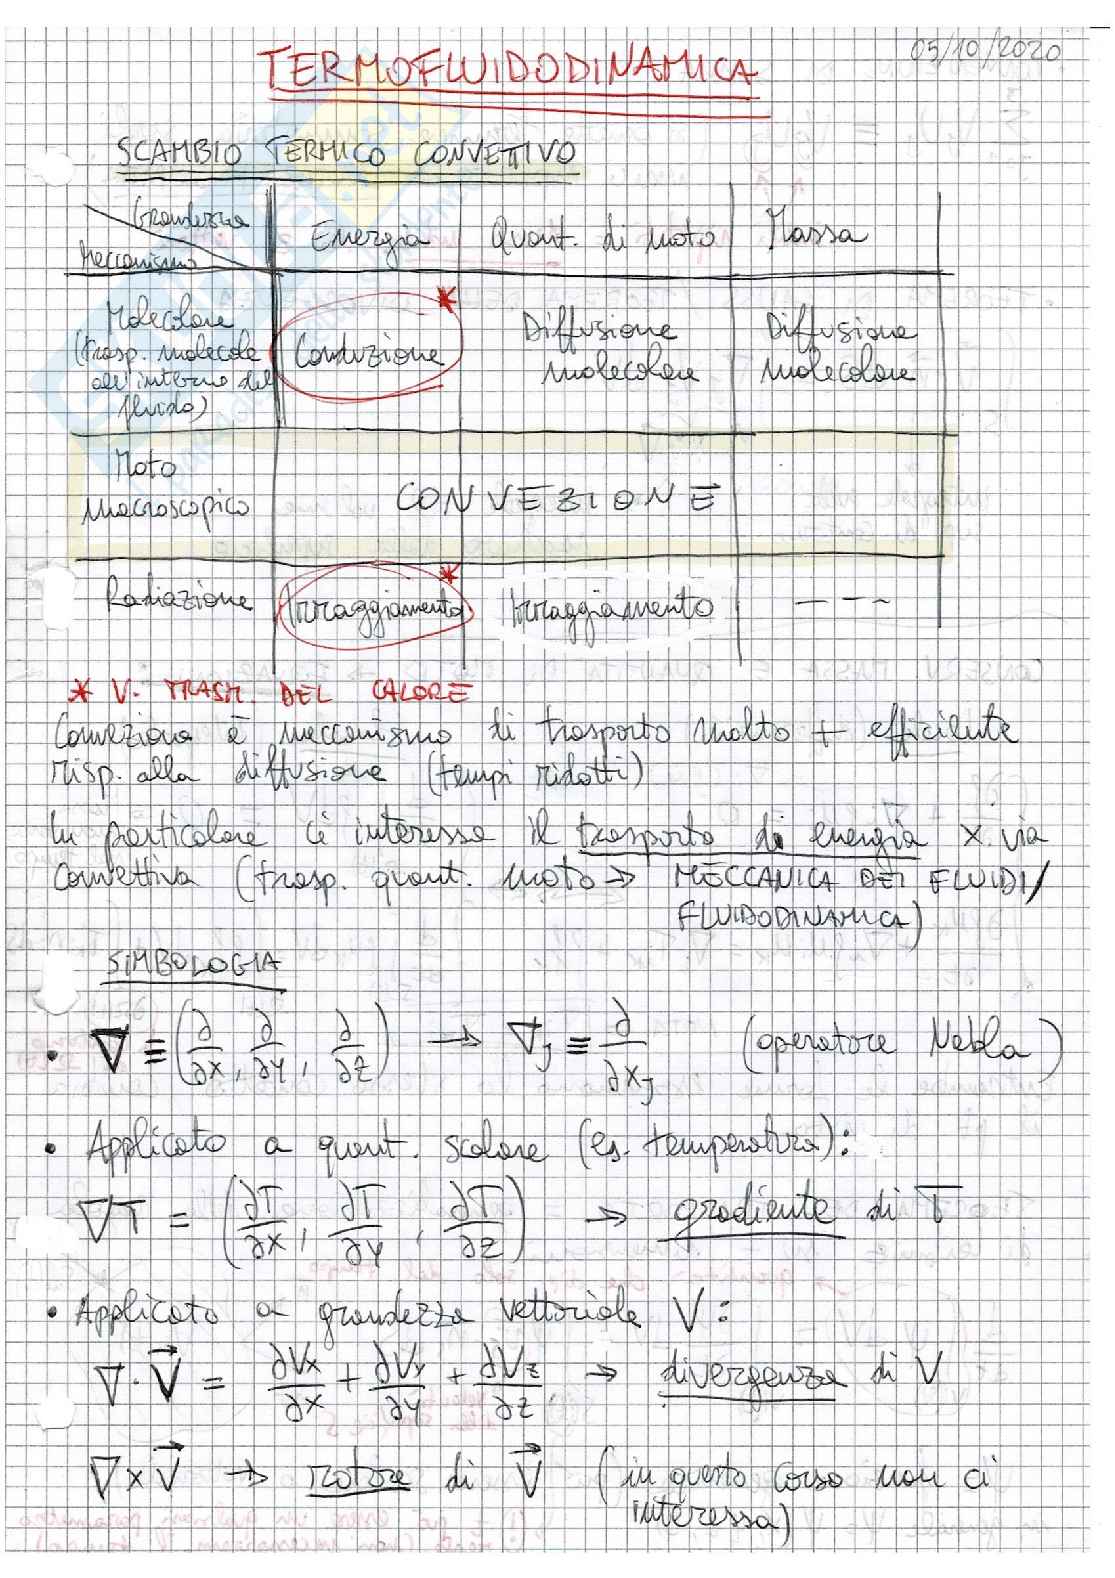 05/10/2020
TERMOFLUIDODINAMICA
SCAMBIO TERMICO CONVETTIVO
Grandezza
Meccanismo
Energia
Quant. di moto
Massa
Molecolare
(trasp. molecole
all'interno del
fluido)
Conduzione *
Diffusione
molecolare
Diffusione
molecolare
Moto
macroscopico
CONVEZIONE
Radiazione
Irraggiamento *
Irraggiamento
---
* V. TRASM. DEL CALORE
Convezione è meccanismo di trasporto molto + efficiente
risp. alla diffusione (tempi ridotti)
In particolare ci interessa il trasporto di energia x via
convettiva (trasp. quant. moto → MECCANICA DEI FLUIDI/
FLUIDODINAMICA)
SIMBOLOGIA
• ∇ ≡ (∂/∂x, ∂/∂y, ∂/∂z) → ∇j ≡ ∂/∂xj (operatore Nabla)
• Applicato a quant. scalare (es. temperatura):
∇T = (∂T/∂x, ∂T/∂y, ∂T/∂z) → gradiente di T
• Applicato a grandezza vettoriale V:
∇·V⃗ = ∂Vx/∂x + ∂Vy/∂y + ∂Vz/∂z → divergenza di V
∇×V⃗ → rotore di V⃗ (in questo corso non ci
interessa)